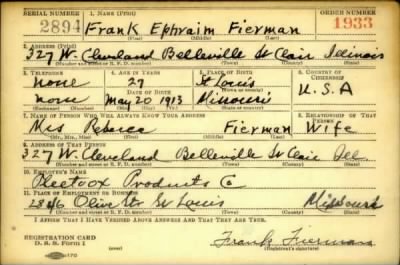 SERIAL NUMBER 1. NAME (Print) ORDER NUMBER
2894 Frank Ephraim Fierman 1933
(First) (Middle) (Last)
2. ADDRESS (Print)
327 W Cleveland Belleville St Clair Illinois
(Number and street or R. F. D. number) (Town) (County) (State)
3. TELEPHONE 4. AGE IN YEARS 5. PLACE OF BIRTH 6. COUNTRY OF CITIZENSHIP
none 27 St Louis
DATE OF BIRTH (Town or county) U.S.A
none May 20 1913 Missouri
(Exchange) (Number) (Mo.) (Day) (Yr.) (State or country)
7. NAME OF PERSON WHO WILL ALWAYS KNOW YOUR ADDRESS 8. RELATIONSHIP OF THAT PERSON
Mrs Fierman Wife
(Mr., Mrs., Miss) (First) (Middle) (Last)
9. ADDRESS OF THAT PERSON
327 W Cleveland Belleville St Clair Ill
(Number and street or R. F. D. number) (Town) (County) (State)
10. EMPLOYER'S NAME
Products Co
11. PLACE OF EMPLOYMENT OR BUSINESS
Olive Str St Louis Missouri
(Number and street or R. F. D. number) (Town) (County) (State)
I AFFIRM THAT I HAVE VERIFIED ABOVE ANSWERS AND THAT THEY ARE TRUE.
REGISTRATION CARD
D. S. S. Form 1 Frank Fierman
(Registrant's signature)